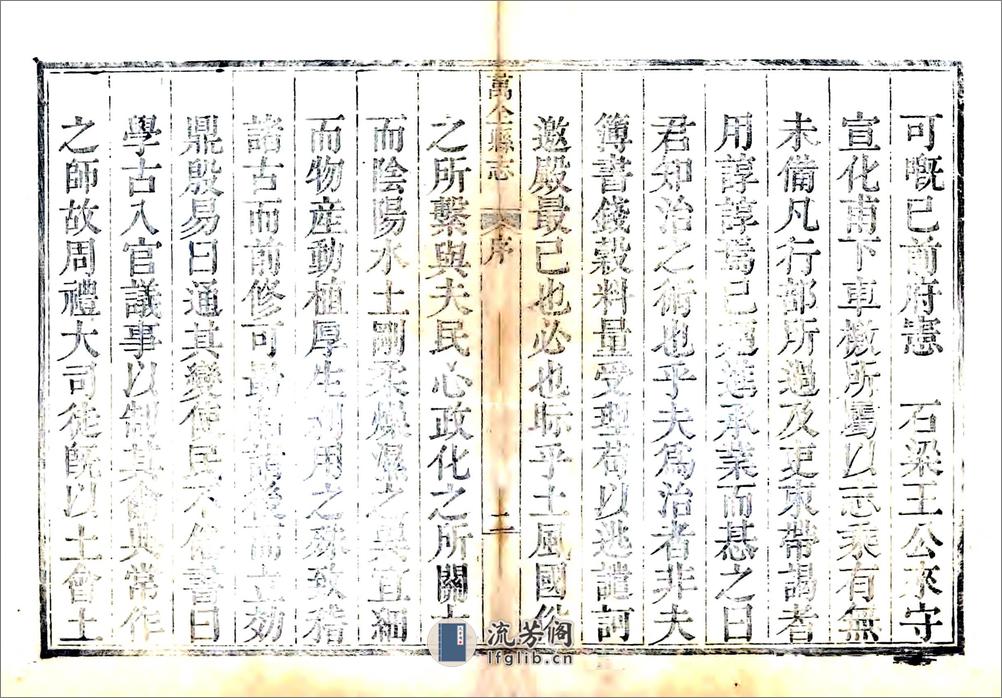 可嘅已前府憲　石梁王公來守
宣化甫下車檄所屬以志乘有無
未備凡行部所過及吏束帶謁者
用諄諄焉已迺進承業而惎之曰
君知治之術也乎夫爲治者非夫
簿書錢穀料量受理苟以逃譴訶
邀殿最已也必也眎乎土風國俗
之所繫與夫民心政化之所關大
而陰陽水土剛柔燥濕之異宜細
而物産動植厚生利用之殊致稽
諸古而前修可 後而立効
鼎殷易曰通其變使民不倦書曰
學古入官議事以制其會典常作
之師故周禮大司徒師以土會土
萬全縣志
序
二
流芳阁
lfglib.cn